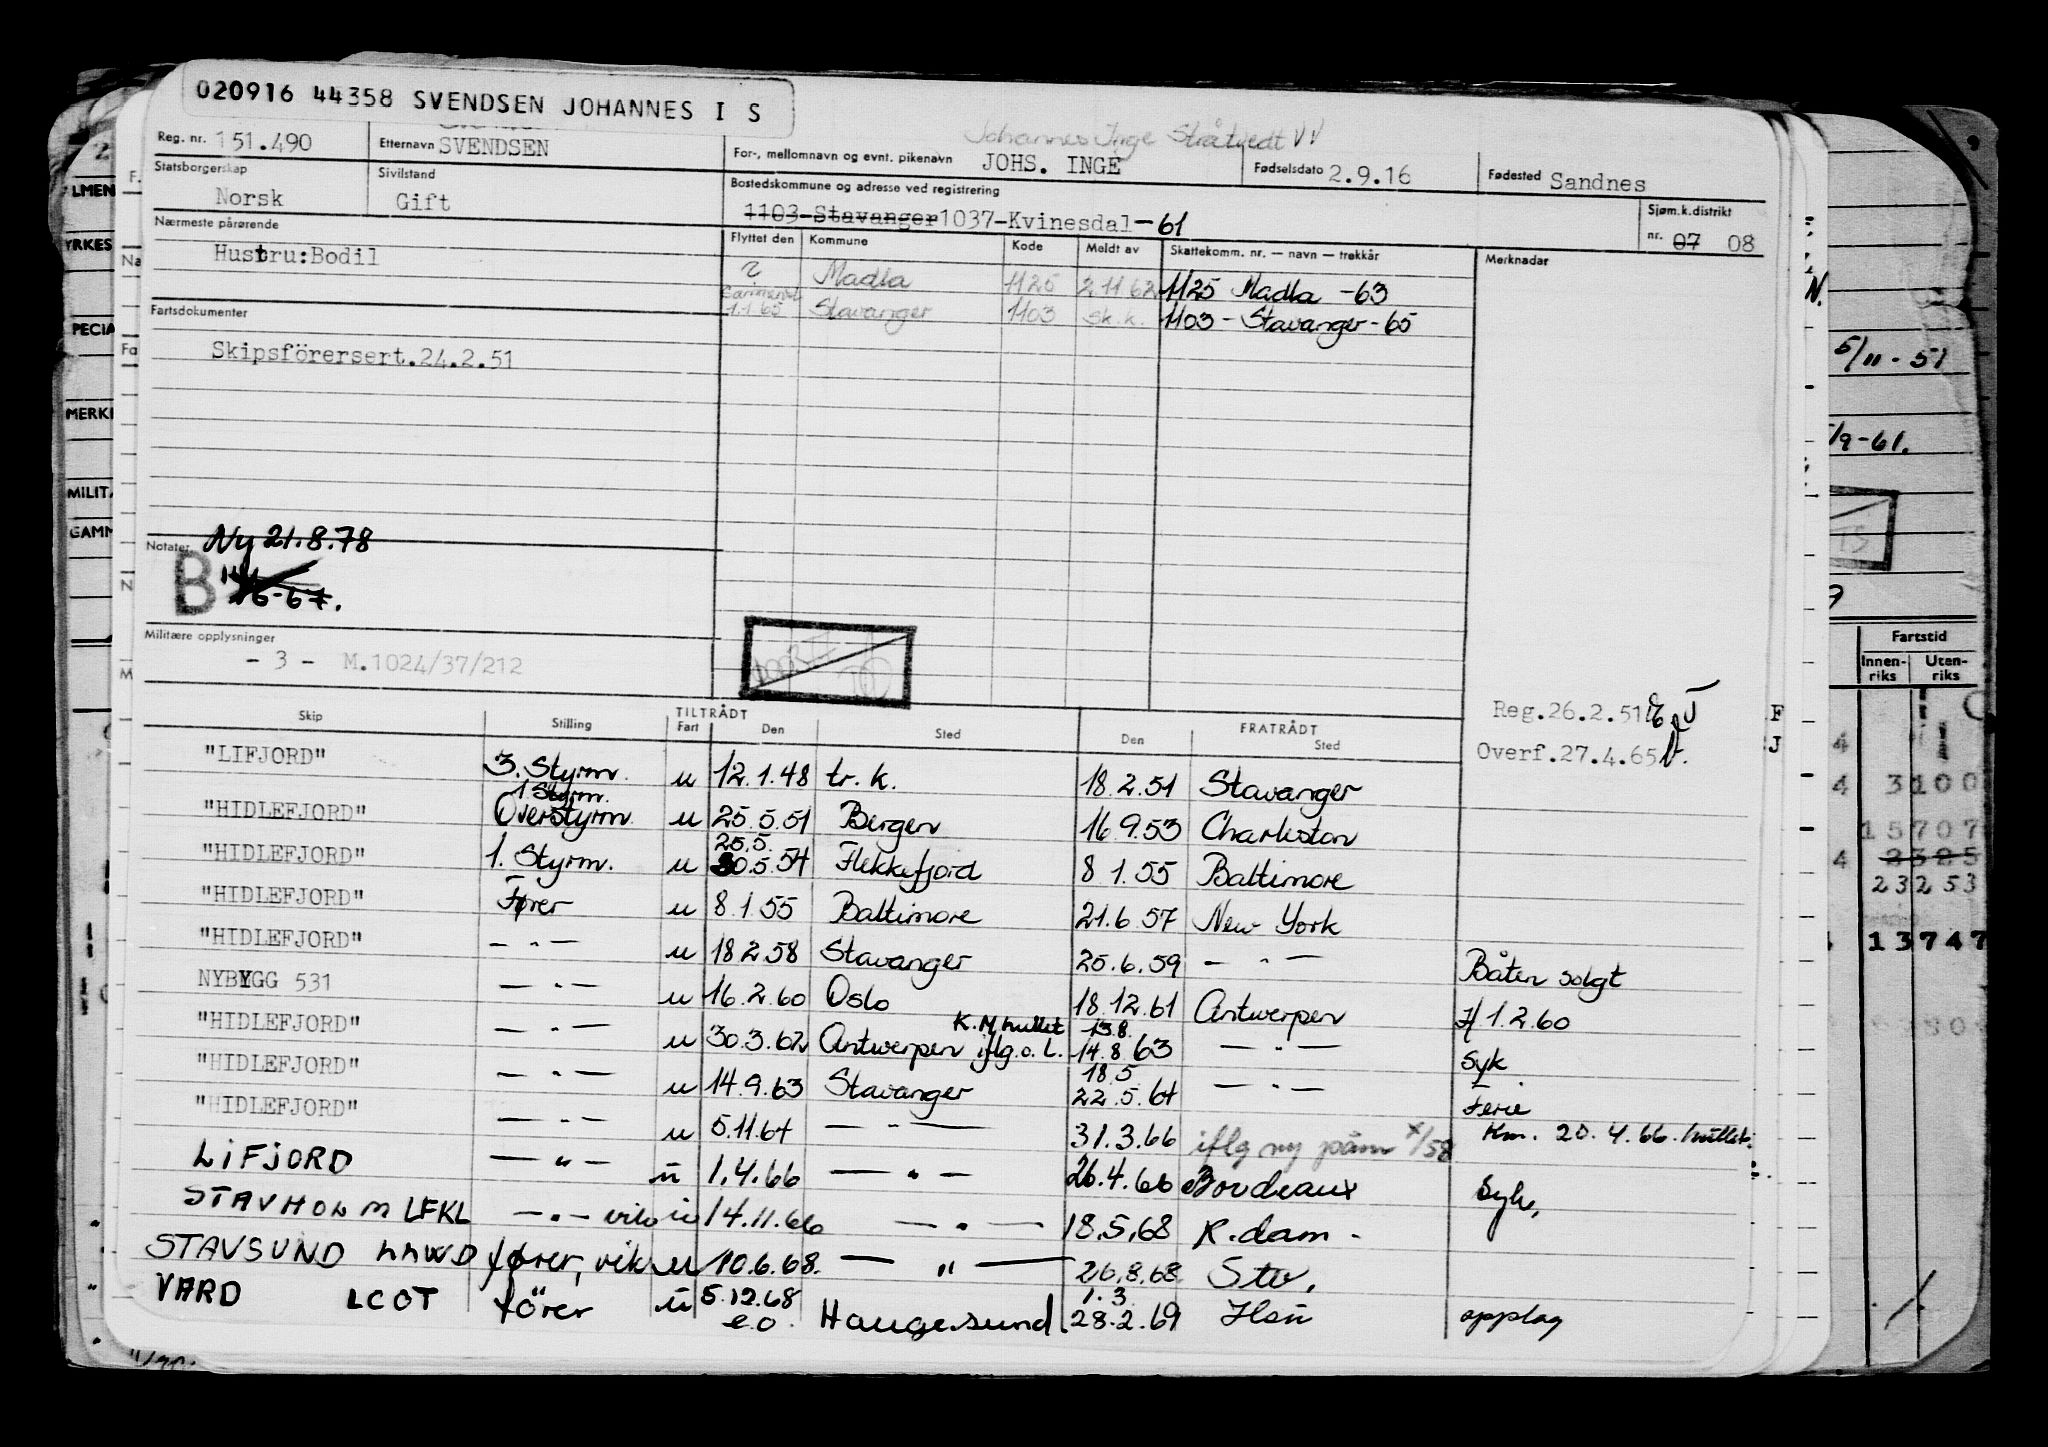 020916 44358 SVENDSEN JOHANNES I S
Reg. nr. 151.490 Etternavn SVENDSEN For-, mellomnavn og evnt. pikenavn Johannes Inge Stråtvedt JOHS. INGE Fødselsdato 2.9.16 Fødested Sandnes
Statsborgerskap Norsk Sivilstand Gift Bostedskommune og adresse ved registrering 1103-Stavanger 1037-Kvinesdal-61 Sjøm.k.distrikt nr. 07 08
Nærmeste pårørende Hustru:Bodil
Flyttet den Kommune Kode Meldt av Skattekomm. nr. — navn — trekkår Merknader
Madla 1125 2.11.62 1125 Madla -63
1.1 65 Stavanger 1103 sk.k. 1103 - Stavanger - 65
Fartsdokumenter
Skipsförersert.24.2.51
Notater Ny 21.8.78
B
6-67.
Militære opplysninger
- 3 - M.1024/37/212
Reg.26.2.51
Overf.27.4.65
Skip Stilling TILTRÅDT Fart Den Sted FRATRÅDT Den Sted
"LIFJORD" 3. Styrm. u 12.1.48 tr. k. 18.2.51 Stavanger
"HIDLEFJORD" 1. Styrm. Overstyrm. u 25.5.51 Bergen 16.9.53 Charleston
"HIDLEFJORD" 1. Styrm. u 25.5. 30.5.54 Flekkefjord 8 1.55 Baltimore
"HIDLEFJORD" Fører u 8.1.55 Baltimore 21.6.57 New York
"HIDLEFJORD" — " — u 18 2.58 Stavanger 25.6.59 — " — Båten solgt
NYBYGG 531 — " — u 16.2.60 Oslo 18.12.61 Antwerpen 1.2.60
"HIDLEFJORD" — " — u 30.3.62 Antwerpen K.M. hullet iflg.o.L. 13.8. 14.8.63 — " — Syk
"HIDLEFJORD" — " — u 14.9.63 Stavanger 18.5. 22.5.64 — " — Ferie
"HIDLEFJORD" — " — u 5.11.64 — " — 31.3.66 iflg ny påm /58 Km. 20.4.66. hullet.
LIFJORD — " — u 1.4.66 — " — 26.4.66 Bordeaux Syk.
STAVHOLM LFKL — " — vik u 14.11.66 — " — 18.5.68 R.dam -
STAVSUND LHWD fører, vik u 10.6.68. — " — 26.8.68 Stv.
VARD LCOT förer u 5.12.68 e.o. Haugesund 1.3. 28.2.69 Hsn opplag
LMEN
YRKES
PECIA
MERKI
MILITA
GAMM
5/11 - 51
/9-61.
Fartstid
Innen-riks Uten-riks
3100
15707
23253
13747